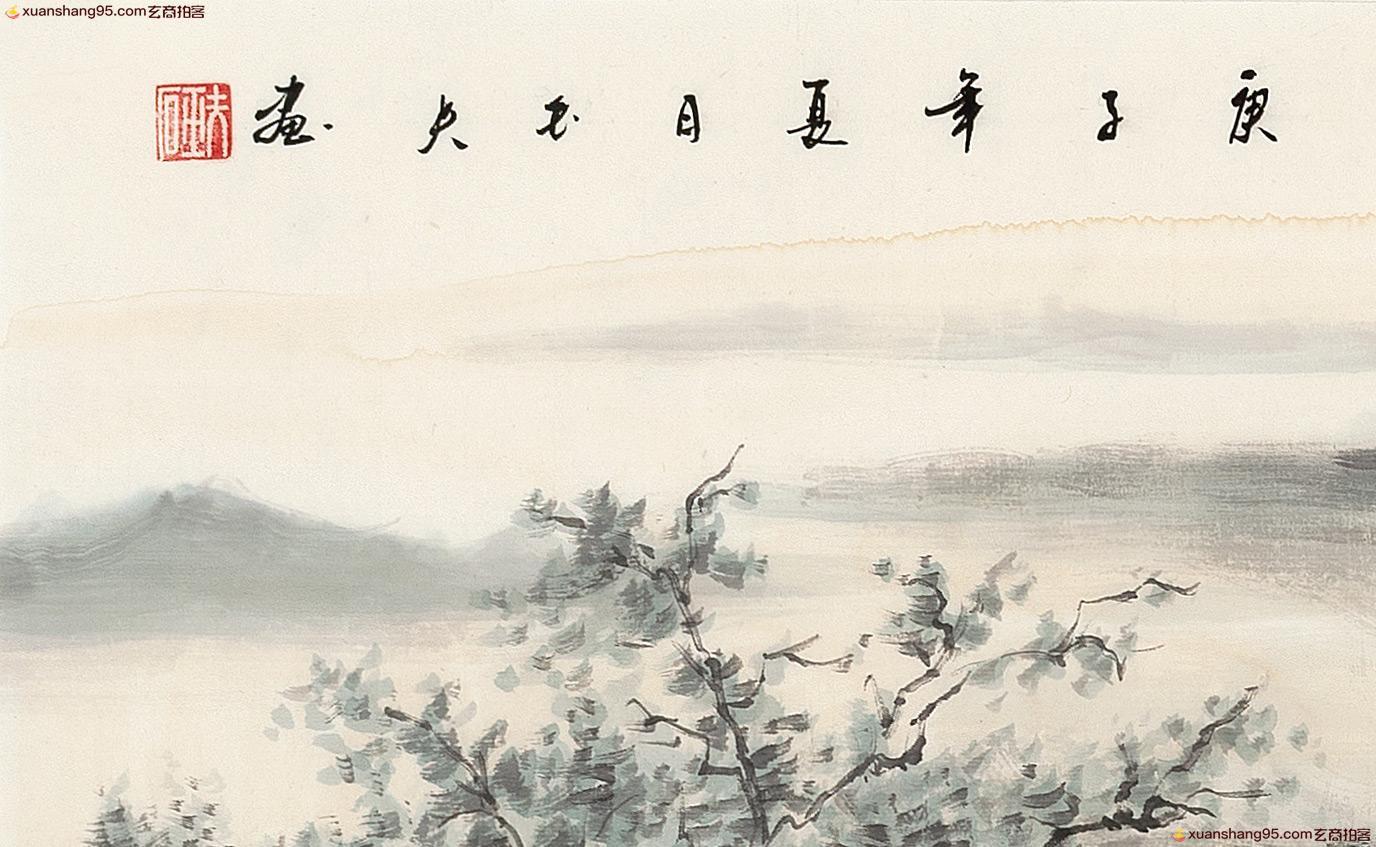 xuanshang95.com玄商拍客
庚子年夏日玉夫畫
xuanshang95.com玄商拍客